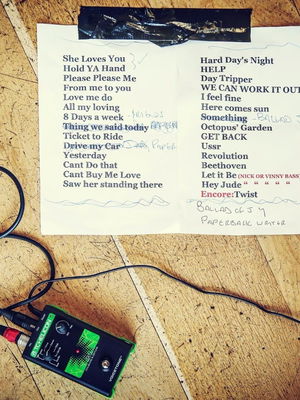 She Loves You
Hold YA Hand
Please Please Me
From me to you
Love me do
All my loving
8 Days a week
Thing we said today
Ticket to Ride
Drive my Car PAPER
Yesterday
Cant Do that
Cant Buy Me Love
Saw her standing there
Hard Day's Night
HELP
Day Tripper
WE CAN WORK IT OUT
I feel fine
Here comes sun
Something - BALLAD J
Octopus' Garden
GET BACK
Ussr
Revolution
Beethoven
Let it Be (NICK OR VINNY BASS)
Hey Jude " " " " "
Encore:Twist
BALLAD OF J Y
PAPERBACK WRITER